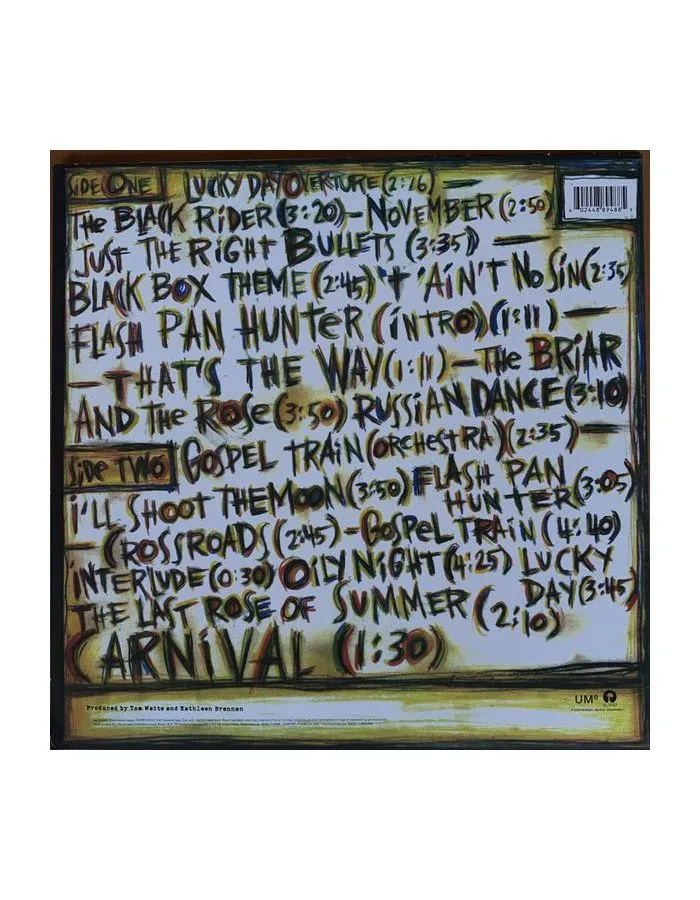 SIDE ONE LUCKY DAY OVERTURE (2:26) —
THE BLACK RIDER (3:20) — NOVEMBER (2:50)
JUST THE RIGHT BULLETS (3:35) —
BLACK BOX THEME (2:45) 'T 'AIN'T NO SIN (2:35)
FLASH PAN HUNTER (INTRO) (1:11) —
— THAT'S THE WAY (1:11) — THE BRIAR
AND THE ROSE (3:50) RUSSIAN DANCE (3:10)
SIDE TWO GOSPEL TRAIN (ORCHESTRA) (2:35) —
I'LL SHOOT THE MOON (3:50) FLASH PAN HUNTER (3:05)
— CROSSROADS (2:45) — GOSPEL TRAIN (4:40)
INTERLUDE (0:30) OILY NIGHT (4:25) LUCKY DAY (3:45)
THE LAST ROSE OF SUMMER (2:10)
CARNIVAL (1:30)
6 02448 89488 1
Produced by Tom Waits and Kathleen Brennan
UMe
ISLAND
A UNIVERSAL MUSIC COMPANY